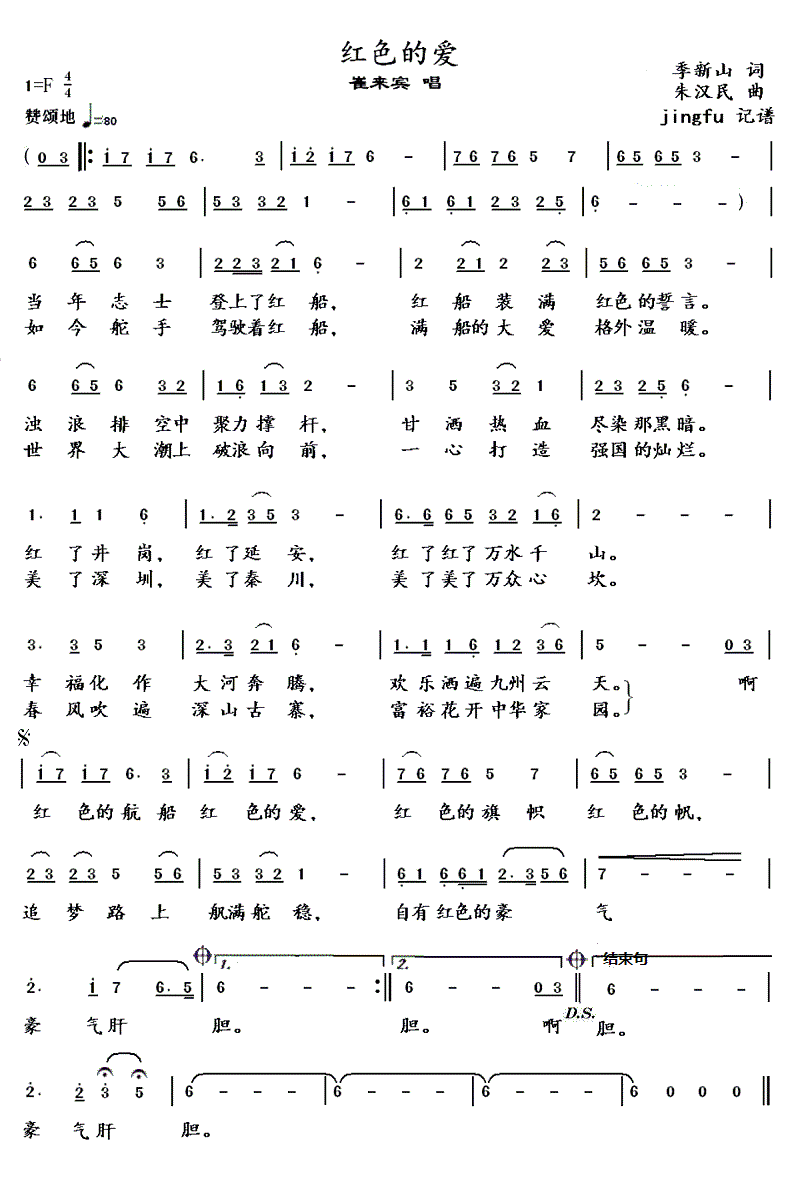 红色的爱
1=F 4/4 崔来宾 唱 季新山 词
赞颂地 ♩=80 朱汉民 曲
jingfu 记谱
(0 3 ‖: i 7 i 7 6. 3 | i 2 i 7 6 - | 7 6 7 6 5 7 | 6 5 6 5 3 - |
2 3 2 3 5 5 6 | 5 3 3 2 1 - | 6 1 6 1 2 3 2 5 | 6 - - - ) |
6 6 5 6 3 | 2 2 3 2 1 6 - | 2 2 1 2 2 3 | 5 5 6 5 3 - |
当年志士 登上了红船， 红船装满 红色的誓言。
如今舵手 驾驶着红船， 满船的大爱 格外温暖。
6 6 5 6 3 2 | 1 6 1 3 2 - | 3 5 3 2 1 | 2 3 2 5 6 - |
浊浪排空中 聚力撑杆， 甘洒热血 尽染那黑暗。
世界大潮上 破浪向前， 一心打造 强国的灿烂。
1. 1 1 6 | 1. 2 3 5 3 - | 6. 6 6 5 3 2 1 6 | 2 - - - |
红了井岗，红了延安， 红了红了万水千山。
美了深圳，美了秦川， 美了美了万众心坎。
3. 3 5 3 | 2. 3 2 1 6 - | 1. 1 1 6 1 2 3 6 | 5 - - 0 3 |
幸福化作 大河奔腾， 欢乐洒遍九州云天。 啊
春风吹遍 深山古寨， 富裕花开中华家园。
𝄋
| i 7 i 7 6. 3 | i 2 i 7 6 - | 7 6 7 6 5 7 | 6 5 6 5 3 - |
红色的航船 红色的爱， 红色的旗帜 红色的帆，
2 3 2 3 5 5 6 | 5 3 3 2 1 - | 6 1 6 6 1 2. 3 5 6 | 7 - - - |
追梦路上 舤满舵稳， 自有红色的豪气
1. 2. 结束句
2. i 7 6. 5 | 6 - - - :‖ 6 - - 0 3 ‖ 6 - - - |
D.S.
豪气肝 胆。 胆。 啊 胆。
2. 2 3 5 | 6 - - - | 6 - - - | 6 - - - | 6 0 0 0 ‖
豪气肝 胆。